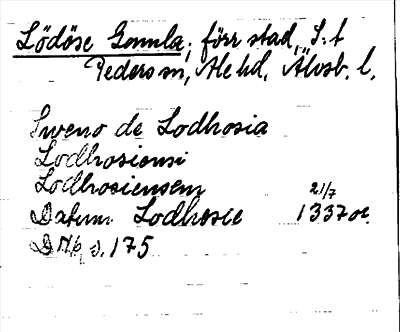 Lödöse Gamla, förr stad, S:t
Peders sn, Ale hd, Älvsb. l.
Sweno de Lodhosia
Lodhosiensi
Lodhosiensem
Datum Lodhosie 21/7 1337 or.
DMp s. 175